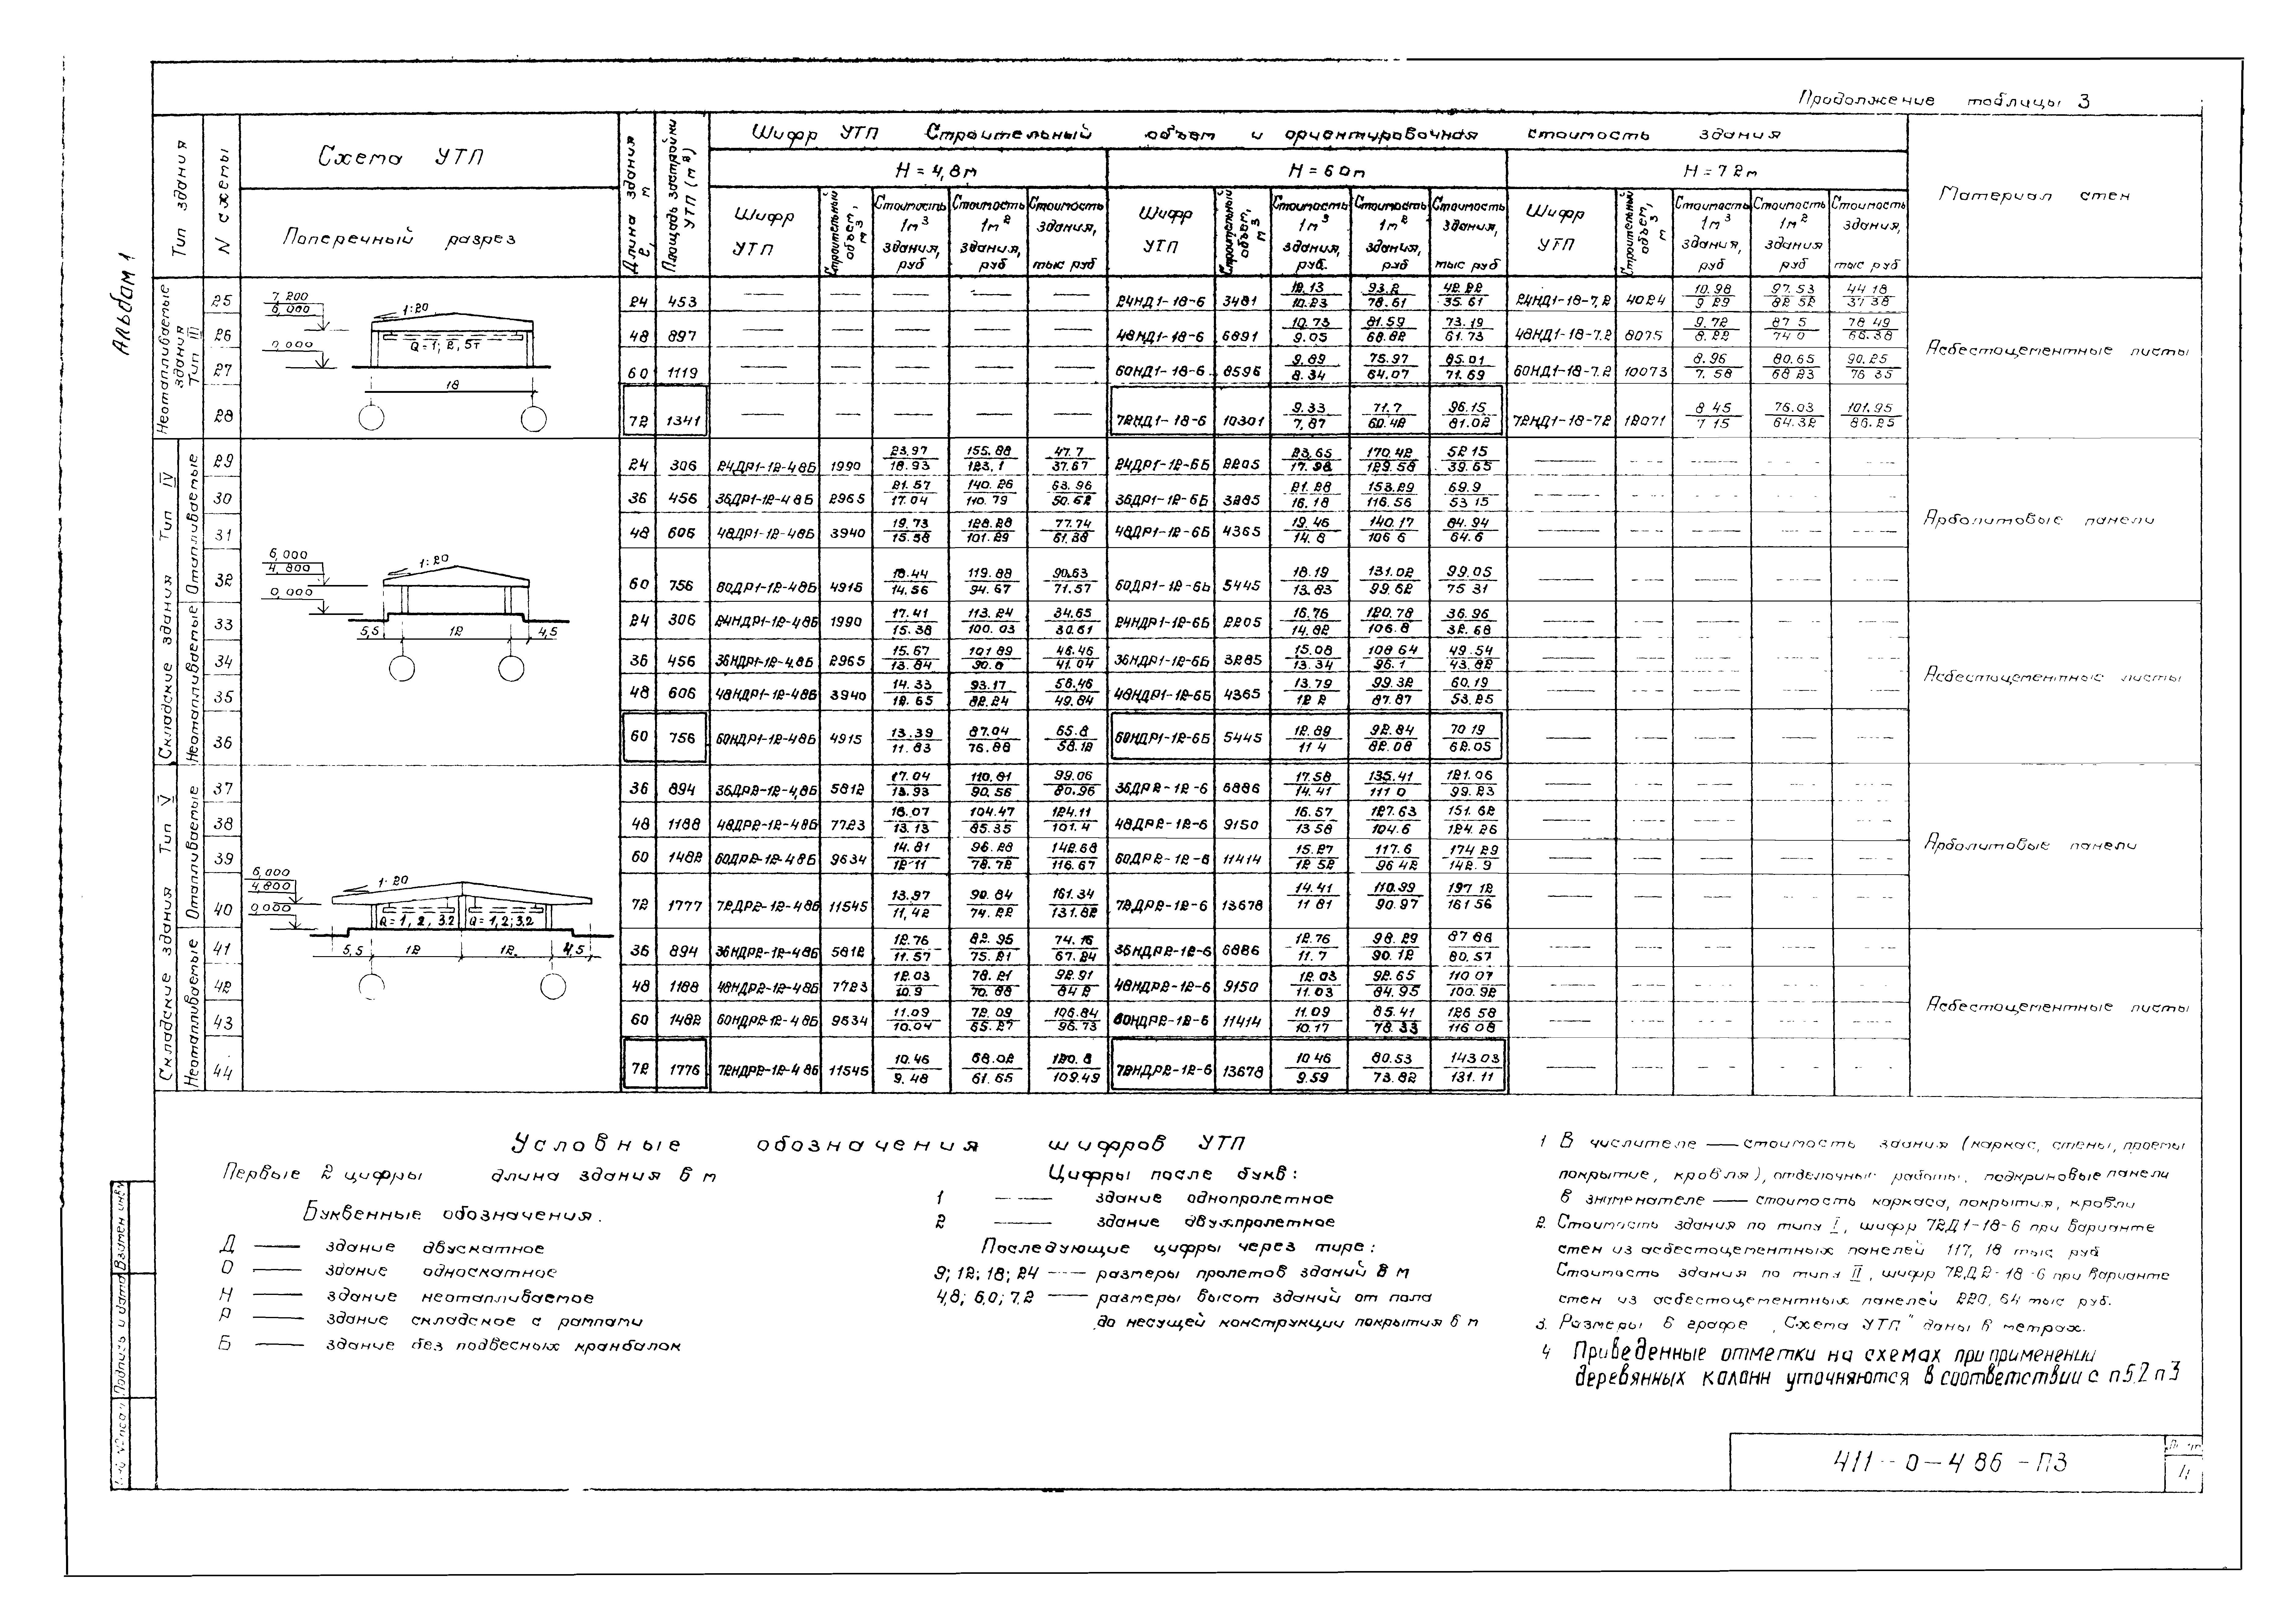 Альбом 1
Продолжение таблицы 3
Тип здания
N схемы
Схема УТП
Поперечный разрез
Длина здания ℓ, м
Площадь застройки УТП (м²)
Шифр УТП Строительный объем и ориентировочная стоимость здания
Материал стен
H = 4,8м
H = 6 0м
H = 7 2м
Шифр УТП
Строительный объем, м3
Стоимость 1м³ здания, руб
Стоимость 1м² здания, руб
Стоимость здания, тыс руб
Шифр УТП
Строительный объем, м3
Стоимость 1м³ здания, руб.
Стоимость 1м² здания, руб
Стоимость здания, тыс руб
Шифр УТП
Строительный объем, м3
Стоимость 1м³ здания, руб
Стоимость 1м² здания руб
Стоимость здания, тыс руб
Неотапливаемые здания Тип III
7,200
6,000
0,000
1:20
Q=1; 2, 5т
18
25 24 453 — — — — — 24НД1-18-6 3481 12.13/10.23 93.2/78.61 42.22/35.61 24НД1-18-7,2 4024 10.98/9 29 97.53/82 52 44 18/37 38
26 48 897 — — — — — 48НД1-18-6 6891 10.73/9.05 81.59/68.82 73.19/61.73 48НД1-18-7.2 8075 9.72/8.22 87 5/74 0 78 49/66.38
27 60 1119 — — — — — 60НД1-18-6 8596 9.89/8.34 75.97/64.07 85.01/71.69 60НД1-18-7.2 10073 8.96/7.58 80.65/68 23 90.25/76 35
28 72 1341 — — — — — 72НД1-18-6 10301 9.33/7,87 71.7/60.42 96.15/81.02 72НД1-18-72 12071 8 45/7 15 76.03/64.32 101.95/86.25
Асбестоцементные листы
Складские здания Тип IV
Отапливаемые
Неотапливаемые
6,000
4,800
0,000
1:20
5,5 12 4,5
29 24 306 24ДР1-12-4 8Б 1990 23.97/18.93 155.88/123,1 47.7/37.67 24ДР1-12-6Б 2205 23,65/17.98 170.42/129.58 52 15/39.65 — — — — —
30 36 456 36ДР1-12-4 8Б 2965 21.57/17.04 140.26/110.79 63.96/50.52 36ДР1-12-6Б 3285 21.28/16.18 153.29/116.56 69.9/53 15 — — — — —
31 48 606 48ДР1-12-48Б 3940 19.73/15.58 128.28/101.29 77.74/61.38 48ДР1-12-6Б 4365 19.46/14.8 140.17/106 6 84.94/64.6 — — — — —
32 60 756 60ДР1-12-48Б 4915 18.44/14.56 119.88/94.67 90.63/71.57 60ДР1-12-6Б 5445 18.19/13.83 131.02/99.62 99.05/75 31 — — — — —
Арболитовые панели
33 24 306 24НДР1-12-48Б 1990 17.41/15.38 113.24/100.03 34.65/30.61 24НДР1-12-6Б 2205 16.76/14.82 120.78/106.8 36.96/32.68 — — — — —
34 36 456 36НДР1-12-4,8Б 2965 15.67/13.84 101 89/90.0 46.46/41.04 36НДР1-12-6Б 3285 15.08/13.34 108 64/96.1 49.54/43.82 — — — — —
35 48 606 48НДР1-12-48Б 3940 14.33/12.65 93.17/82.24 56.46/49.84 48НДР1-12-6Б 4365 13.79/12 2 99.32/87.87 60.19/53.25 — — — — —
36 60 756 60НДР1-12-48Б 4915 13.39/11.83 87.04/76.88 65.8/58.12 60НДР1-12-6Б 5445 12.89/11 4 92.84/82.08 70 19/62.05 — — — — —
Асбестоцементные листы
Складские здания Тип V
Отапливаемые
Неотапливаемые
6,000
4,800
0,000
1:20
Q=1, 2, 3.2 Q=1,2;3,2
5,5 12 12 4,5
37 36 894 36ДР2-12-4,8Б 5812 17.04/13.93 110.81/90.56 99.06/80.96 36ДР2-12-6 6886 17.58/14.41 135.41/111 0 121.06/99.23 — — — — —
38 48 1188 48ДР2-12-48Б 7723 16.07/13.13 104.47/85.35 124.11/101.4 48ДР2-12-6 9150 16.57/13 58 127.63/104.6 151.62/124.26 — — — — —
39 60 1482 60ДР2-12-48Б 9634 14.81/12 11 96.28/78.72 142.68/116.67 60ДР2-12-6 11414 15.27/12 52 117.6/96 42 174 29/142.9 — — — — —
40 72 1777 72ДР2-12-48Б 11545 13.97/11,42 90.84/74.22 161.34/131.82 72ДР2-12-6 13678 14.41/11 81 110.99/90.97 197 12/161 56 — — — — —
Арболитовые панели
41 36 894 36НДР2-12-48Б 5812 12.76/11.57 82.95/75.21 74.16/67.24 36НДР2-12-6 6886 12.76/11.7 98.29/90.12 87 88/80.57 — — — — —
42 48 1188 48НДР2-12-48Б 7723 12.03/10.9 78.21/70.88 92.91/84 2 48НДР2-12-6 9150 12.03/11.03 92.65/84.95 110 07/100.92 — — — — —
43 60 1482 60НДР2-12-4 8Б 9634 11.09/10.04 72.09/65.27 106.84/96.73 60НДР2-12-6 11414 11.09/10.17 85.41/78.33 126 58/116 08 — — — — —
44 72 1776 72НДР2-12-4 8Б 11545 10.46/9.48 68.02/61.65 120.8/109.49 72НДР2-12-6 13678 10 46/9.59 80.53/73.82 143 03/131.11 — — — — —
Асбестоцементные листы
Условные обозначения шифров УТП
Первые 2 цифры длина здания в м
Буквенные обозначения.
Д — здание двускатное
О — здание односкатное
Н — здание неотапливаемое
Р — здание складское с рампами
Б — здание без подвесных кранбалок
Цифры после букв:
1 — здание однопролетное
2 — здание двухпролетное
Последующие цифры через тире:
9; 12; 18; 24 — размеры пролетов зданий в м
4,8; 6,0; 7,2 — размеры высот зданий от пола
до несущей конструкции покрытия в м
1 В числителе — стоимость здания (каркас, стены, проемы
покрытие, кровля), отделочные работы, подкриновые панели
в знаменателе — стоимость каркаса, покрытия, кровли
2. Стоимость здания по типу I, шифр 72Д1-18-6 при варианте
стен из асбестоцементных панелей 117, 18 тыс руб
Стоимость здания по типу II, шифр 72Д2-18-6 при варианте
стен из асбестоцементных панелей 220, 64 тыс руб.
3. Размеры в графе „Схема УТП" даны в метрах.
4 Приведенные отметки на схемах при применении
деревянных колонн уточняются в соответствии с п5.2 п3
Подпись и дата
Взамен инв.
411-0-4 86-ПЗ
4